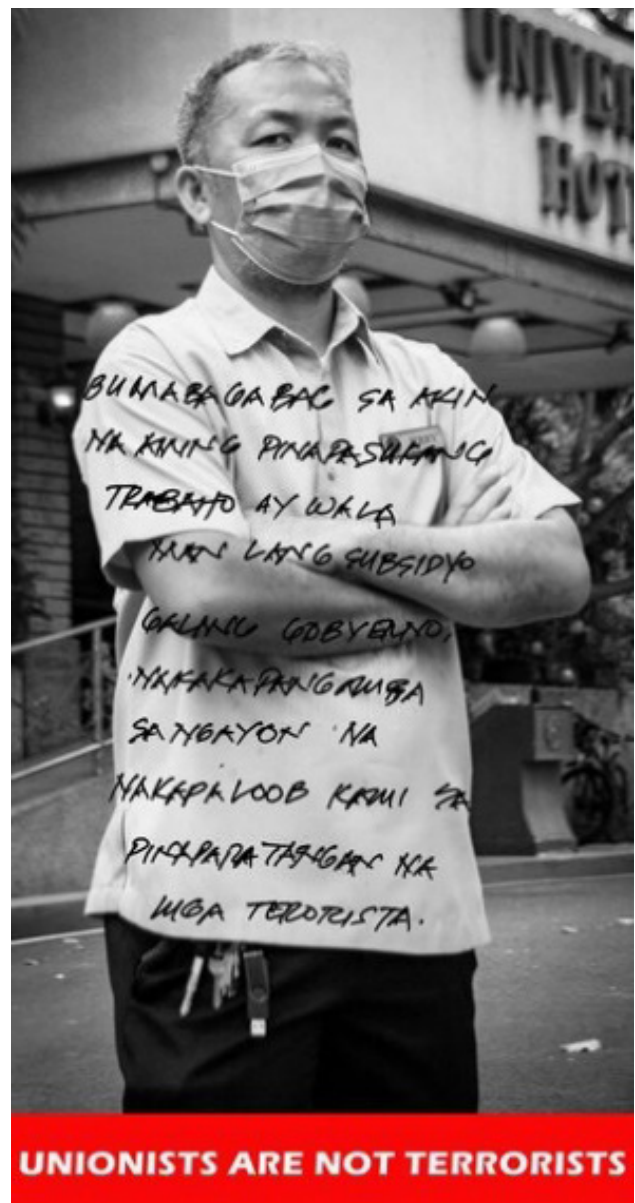 UNIVER
HOT
BUMABAGABAG SA AKIN
NA AMING PINAPASUKANG
TRABAHO AY WALA
MAN LANG SUBSIDYO
GALING GOBYERNO,
NAKAKAPANGAMBA
SA NGAYON NA
NAKAPALOOB KAMI SA
PINAPARATANGAN NA
MGA TERORISTA.
UNIONISTS ARE NOT TERRORISTS